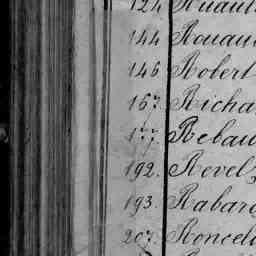 124 Ruault
144 Rouau
146 Robert
167 Richa
177 Rebau
192. Revel
193. Rabar
207. Roncel